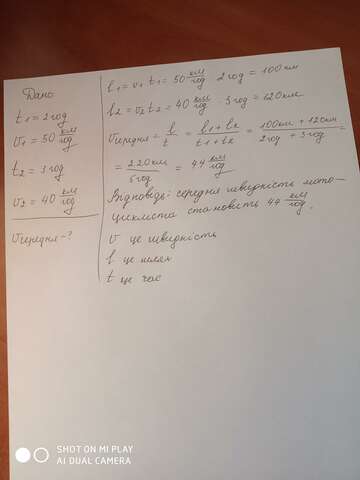 Дано
t1 = 2 год
v1 = 50 км/год
t2 = 3 год
v2 = 40 км/год
vсередня - ?
l1 = v1 t1 = 50 км/год · 2 год = 100 км
l2 = v2 t2 = 40 км/год · 3 год = 120 км
vсередня = l/t = (l1 + l2)/(t1 + t2) = (100 км + 120 км)/(2 год + 3 год) =
= 220 км/5 год = 44 км/год
Відповідь: середня швидкість мото-
цикліста становить 44 км/год.
v це швидкість
l це шлях
t це час
SHOT ON MI PLAY
AI DUAL CAMERA